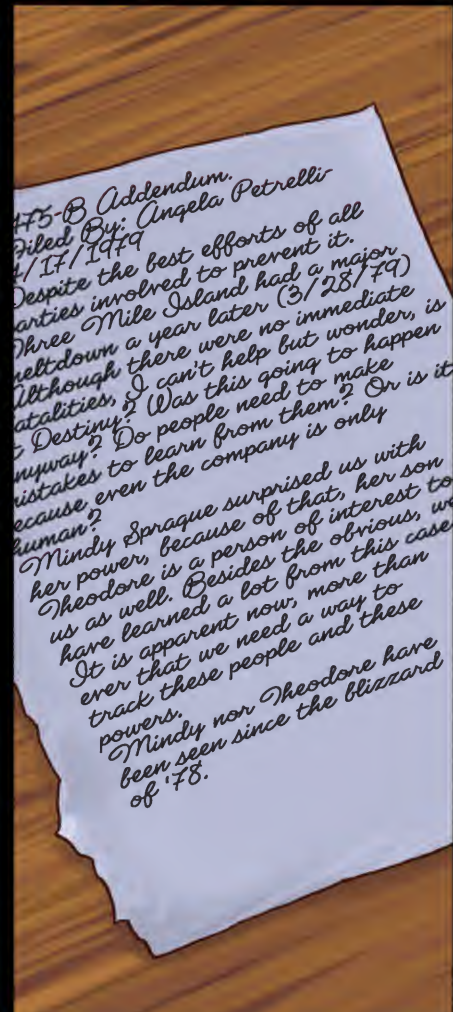 475-B Addendum.
Filed By: Angela Petrelli
4/17/1979
Despite the best efforts of all
parties involved to prevent it.
Three Mile Island had a major
meltdown a year later (3/28/79)
Although there were no immediate
fatalities, I can't help but wonder, is
it Destiny? Was this going to happen
anyway? Do people need to make
mistakes to learn from them? Or is it
because even the company is only
human?
Mindy Sprague surprised us with
her power, because of that, her son
Theodore is a person of interest to
us as well. Besides the obvious, we
have learned a lot from this case
It is apparent now, more than
ever that we need a way to
track these people and these
powers.
Mindy nor Theodore have
been seen since the blizzard
of '78.